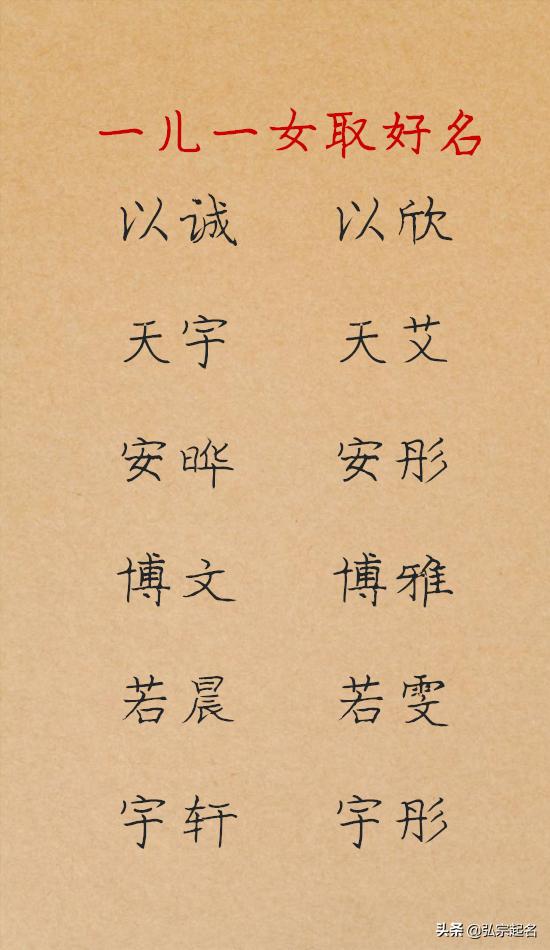 一儿一女取好名
以诚 以欣
天宇 天艾
安晔 安彤
博文 博雅
若晨 若雯
宇轩 宇彤
头条 @弘宗起名